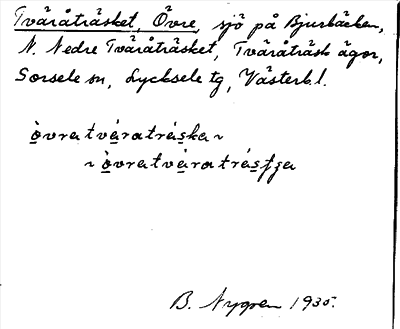 Tväråträsket, Övre, sjö på Bjurbäcken,
N. Nedre Tväråträsket, Tväråträsk ägor,
Sorsele sn, Lycksele tg, Västerb. l.
òvratvàratràska ~
~ òvratvàratràsʃʒa
B. Nygren 1935.